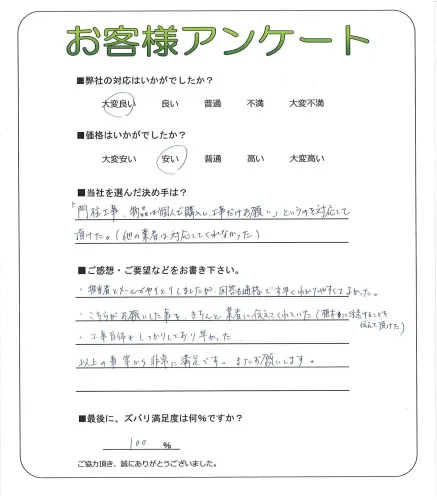 お客様アンケート
■弊社の対応はいかがでしたか？
大変良い 良い 普通 不満 大変不満
■価格はいかがでしたか？
大変安い 安い 普通 高い 大変高い
■当社を選んだ決め手は？
「門柱工事、物品は個人で購入し、工事だけお願い」というのを対応して
頂けた。（他の業者は対応してくれなかった）
■ご感想・ご要望などをお書き下さい。
・担当者とメールでやりとりしましたが、回答も価格もとても早くわかりやすくてよかった。
・こちらがお願いした事を、きちんと業者に伝えてくれていた（注意することを
伝えて頂けた）
・工事自体もしっかりしており早かった
以上の事等から非常に満足です。またお願いします。
■最後に、ズバリ満足度は何％ですか？
100 ％
ご協力頂き、誠にありがとうございました。